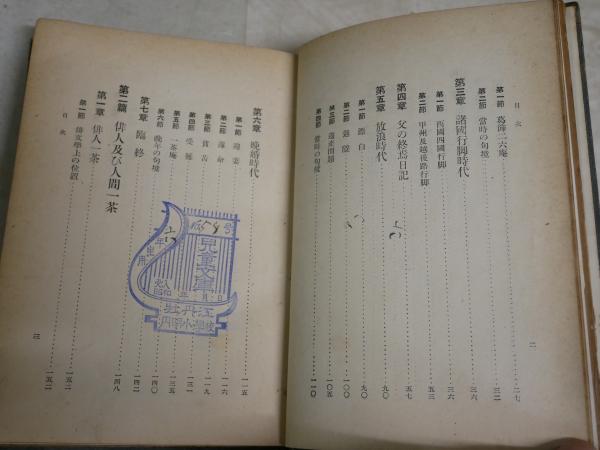 目次
第一節 葛飾二六庵 二七
第二節 當時の句境 三二
第三章 諸國行脚時代 三六
第一節 西國四國行脚 三六
第二節 甲州及越後路行脚 五三
第四章 父の終焉日記 五七
第五章 放浪時代 九〇
第一節 漂白 九〇
第二節 一〇〇
第三節 遺産問題 一〇五
第四節 當時の句境 一一〇
二
第六章 晩婚時代 一一五
第一節 迎妻 一一五
第二節 一一六
第三節 一一九
第四節 一三一
第五節 一茶庵 一三五
第六節 晩年の句境 一四〇
第七章 臨終 一四二
第二篇 俳人及び人間一茶 一四八
第一章 俳人一茶 一五二
第一節 俳文學上の位置 一五二
目次
三
658号
年生用
兒童文庫
年 月 日
牡丹江
小學校